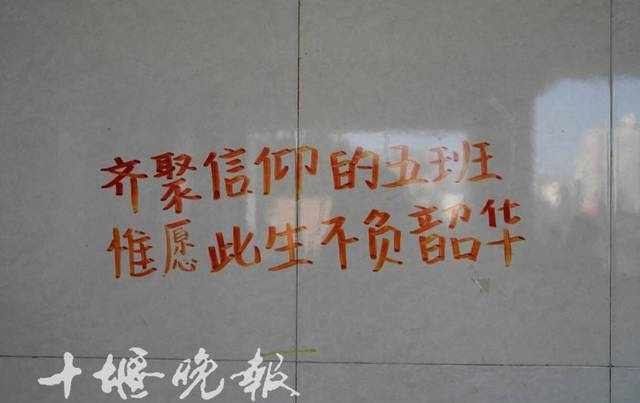 齐聚信仰的五班
惟愿此生不负韶华
十堰晚报